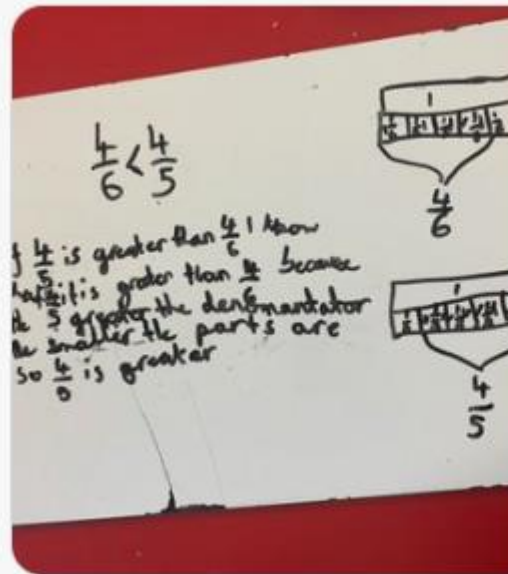 4/6 < 4/5
4/5 is greater than 4/6 I know
it is grater than 4/6 because
5 greater the denmantator
the smaller the parts are
so 4/5 is greater
1
4/6
1
4/5